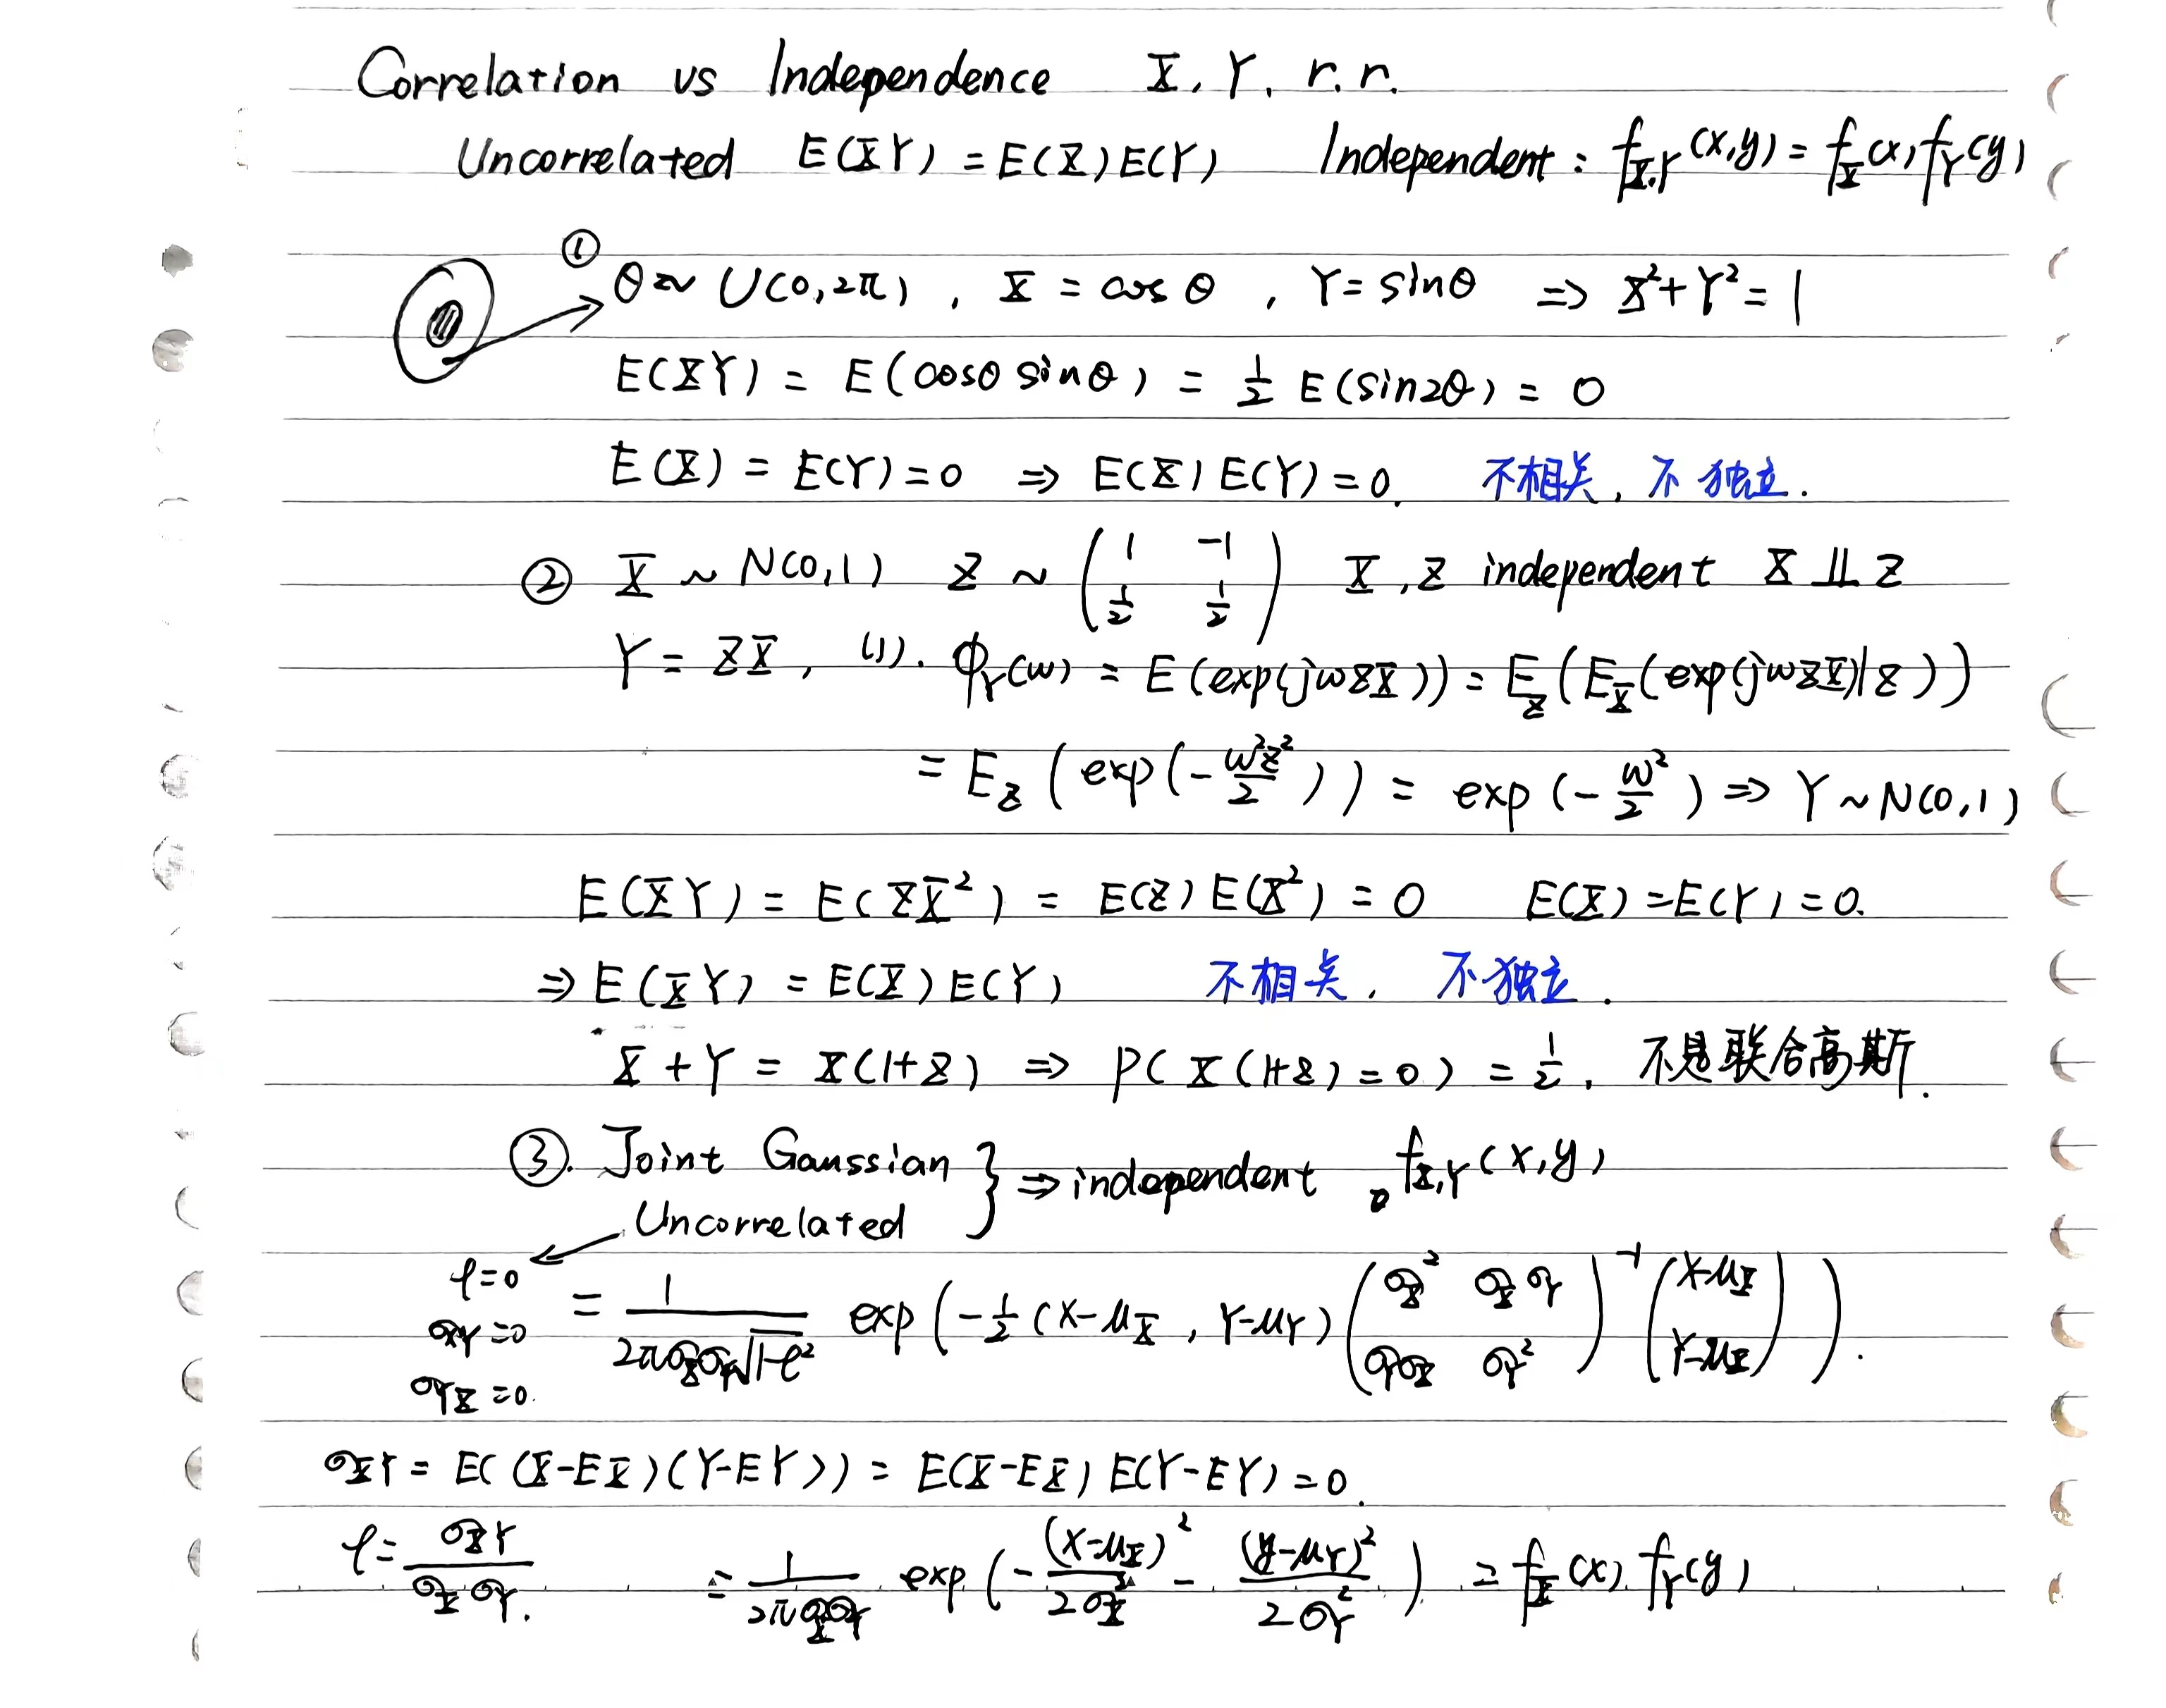 Correlation vs Independence X, Y, r.r.
Uncorrelated E(XY) = E(X)E(Y) Independent: f_{X,Y}(x,y) = f_X(x) f_Y(y)
① θ ~ U(0,2π), X = cos θ, Y = sinθ ⇒ X²+Y² = 1
E(XY) = E(cosθ sinθ) = 1/2 E(sin2θ) = 0
E(X) = E(Y) = 0 ⇒ E(X)E(Y) = 0. 不相关, 不独立.
② X ~ N(0,1) Z ~ (1 -1; 1/2 1/2) X, Z independent X ⫫ Z
Y = ZX, (1). ϕ_Y(ω) = E(exp(jωZX)) = E_Z(E_X(exp(jωZX)|Z))
= E_Z(exp(-ω²Z²/2)) = exp(-ω²/2) ⇒ Y ~ N(0,1)
E(XY) = E(ZX²) = E(Z)E(X²) = 0 E(X) = E(Y) = 0.
⇒ E(XY) = E(X)E(Y) 不相关, 不独立.
X + Y = X(1+Z) ⇒ P(X(1+Z)=0) = 1/2, 不是联合高斯.
③. Joint Gaussian
Uncorrelated } ⇒ independent f_{X,Y}(x,y)
ρ=0
σ_{XY}=0
σ_{YX}=0.
= 1/(2πσ_Xσ_Y√(1-ρ²)) exp(-1/2 (X-μ_X, Y-μ_Y) (σ_X² σ_Xσ_Y; σ_Yσ_X σ_Y²)^{-1} (X-μ_X; Y-μ_X)).
σ_{XY} = E((X-EX)(Y-EY)) = E(X-EX)E(Y-EY) = 0.
ρ = σ_{XY}/(σ_Xσ_Y). = 1/(2πσ_Xσ_Y) exp(-(x-μ_X)²/(2σ_X²) - (y-μ_Y)²/(2σ_Y²)) = f_X(x) f_Y(y)